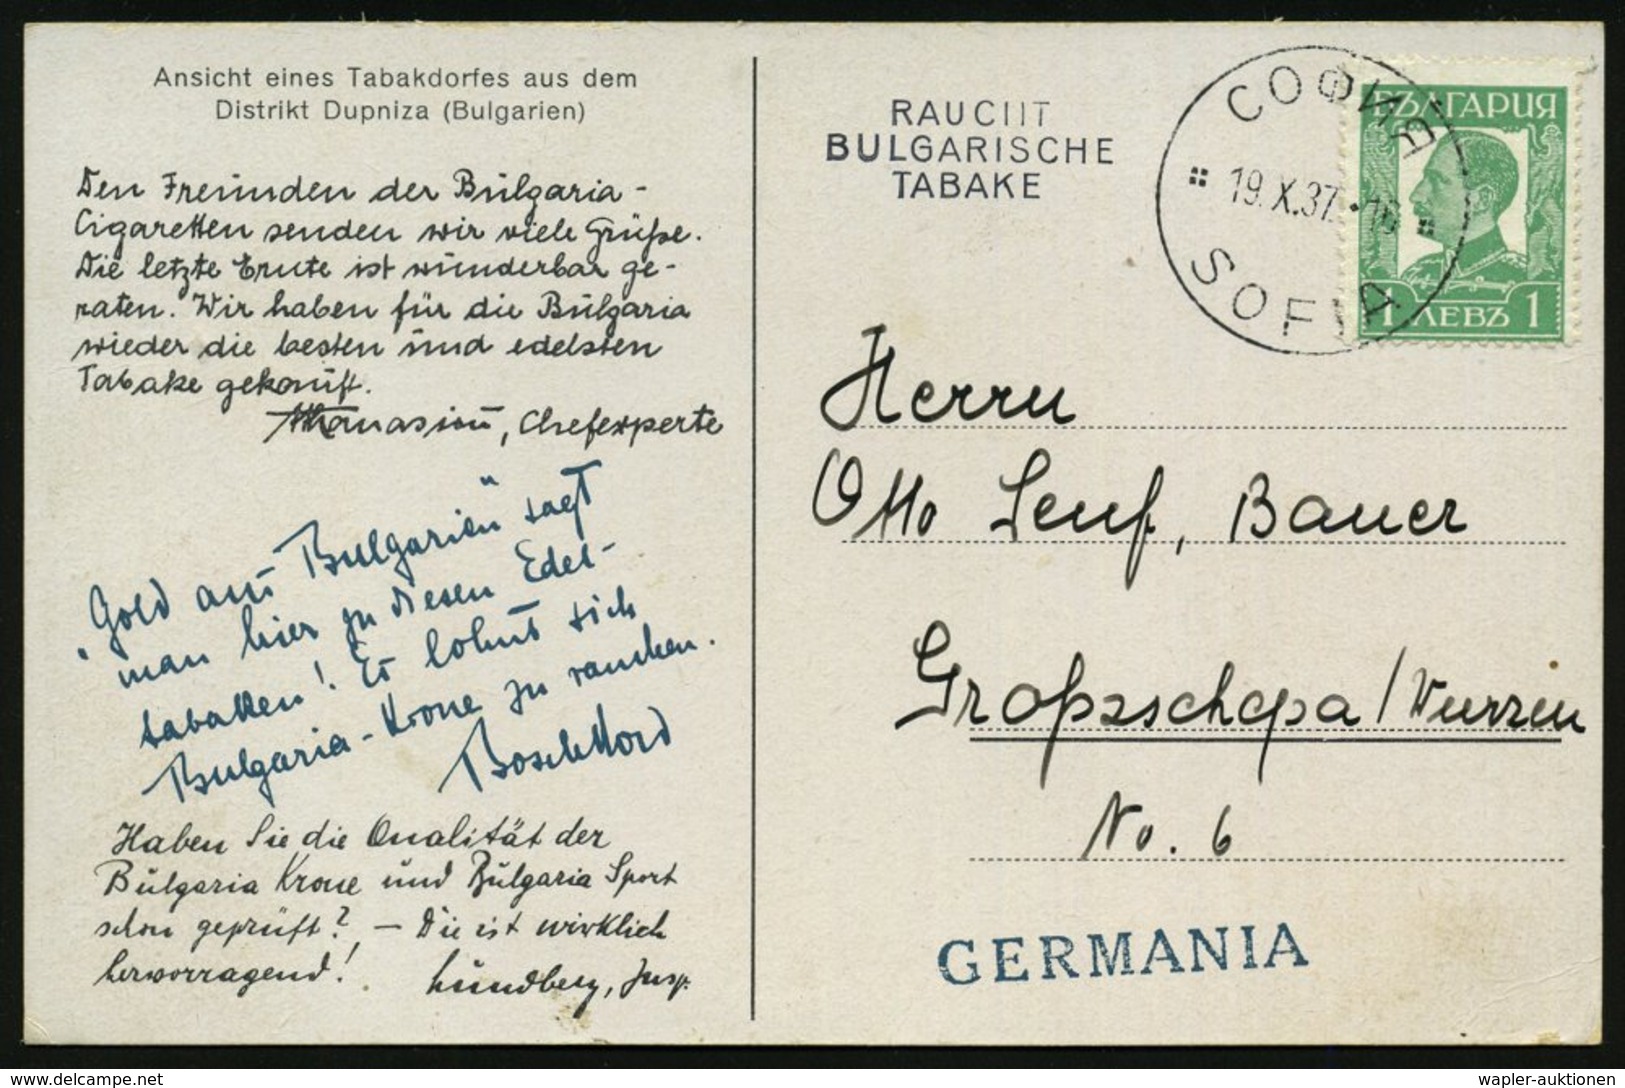 Ansicht eines Tabakdorfes aus dem
Distrikt Dupniza (Bulgarien)
Den Freunden der Bulgaria-
Cigaretten senden wir viele Grüße.
Die letzte Ernte ist wunderbar ge-
raten. Wir haben für die Bulgaria
wieder die besten und edelsten
Tabake gekauft.
Athanasiou, Chefexperte
"Gold aus Bulgarien" sagt
man hier zu diesen Edel-
tabakken! Es lohnt sich
Bulgaria-Krone zu rauchen.
Haben Sie die Qualität der
Bulgaria Krone und Bulgaria Sport
schon geprüft? – Die ist wirklich
hervorragend!
Lundberg, Insp.
RAUCHT
BULGARISCHE
TABAKE
СОФИЯ
19.X.37.
SOFIA
БЪЛГАРИЯ
1 ЛЕВЪ 1
Herrn
Otto Senf, Bauer
Großzschepa / Wurzen
No. 6
GERMANIA
wapler-auktionen